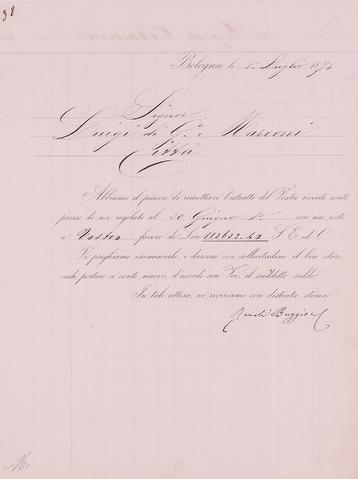 38
Bologna li 1. Luglio 1874
Signor
Luigi di G. Marconi
Città
Abbiamo il piacere di rimettervi l'estratto del Vostro rispetto conto
presso di noi regolato al 30 Giugno con un resto
a Vostro favore di Lire S. E. ed O.
Vi preghiamo esaminarlo, e darcene con sollecitudine il ben stare,
onde portare a conto nuovo, d'accordo con Voi, il suddetto saldo
In tale attesa, vi riveriamo con distinta stima